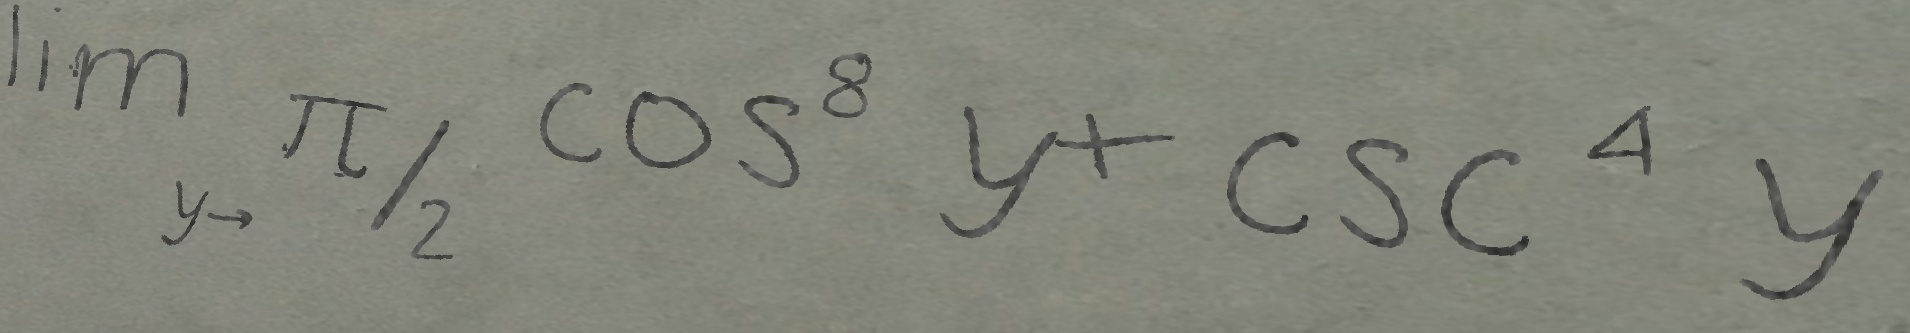 lim y→ π/2 cos^8 y + csc^4 y